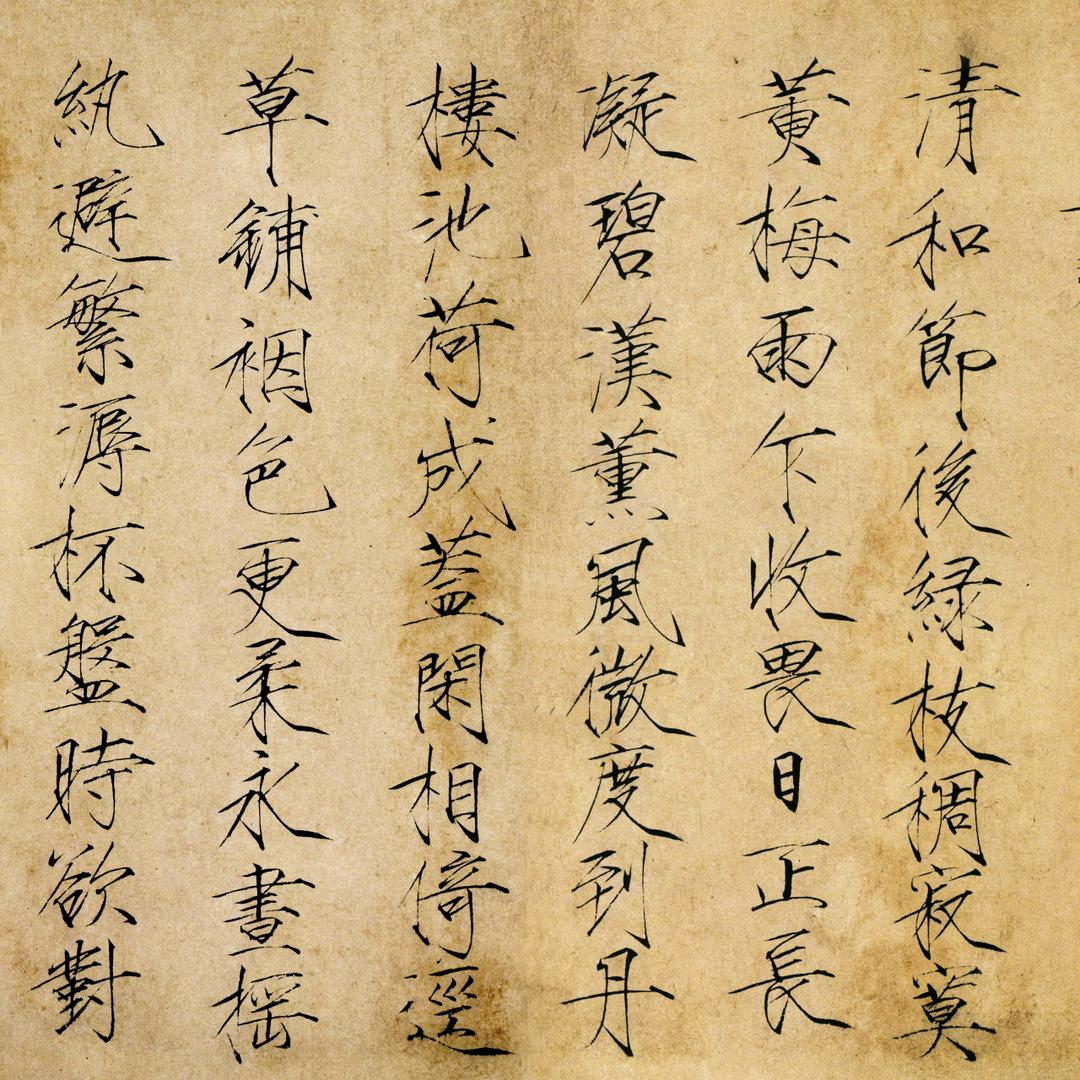 清和節後緑枝稠寂寞
黄梅雨乍收畏日正長
凝碧漢薰風微度到丹
樓池荷成蓋閑相倚逕
草鋪裀色更柔永晝揺
紈避繁溽杯盤時欲對